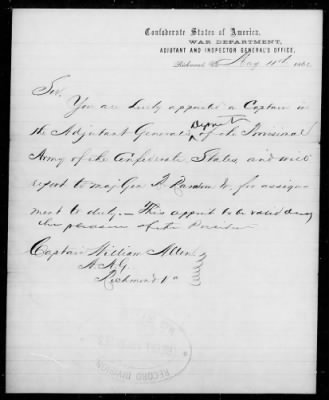 Confederate States of America,
WAR DEPARTMENT,
ADJUTANT AND INSPECTOR GENERAL'S OFFICE,
Richmond, Va May 11th 186
Sir.
You are hereby appointed a Captain in
the Adjutant Generals Depmt of the Provisional
Army of the Confederate States, and will
report to Maj Gen for assign-
ment to duty. — This appmt to be valid during
the pleasure of the President
Captain William Allen
A.A.G.
Richmond Va
RECORD DIVISION